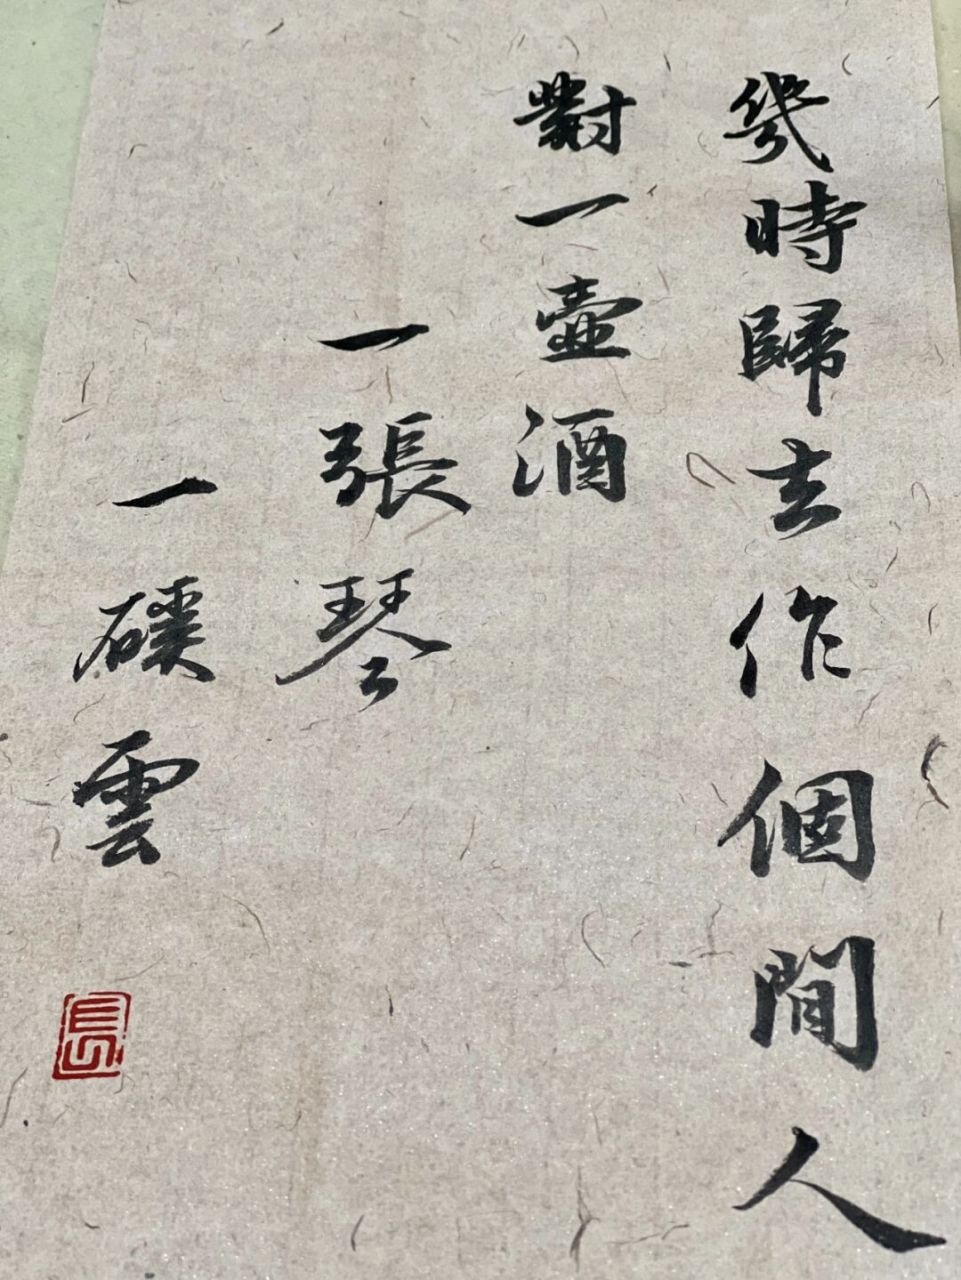 幾時歸去作個閒人
對一壺酒
一張琴
一磎雲